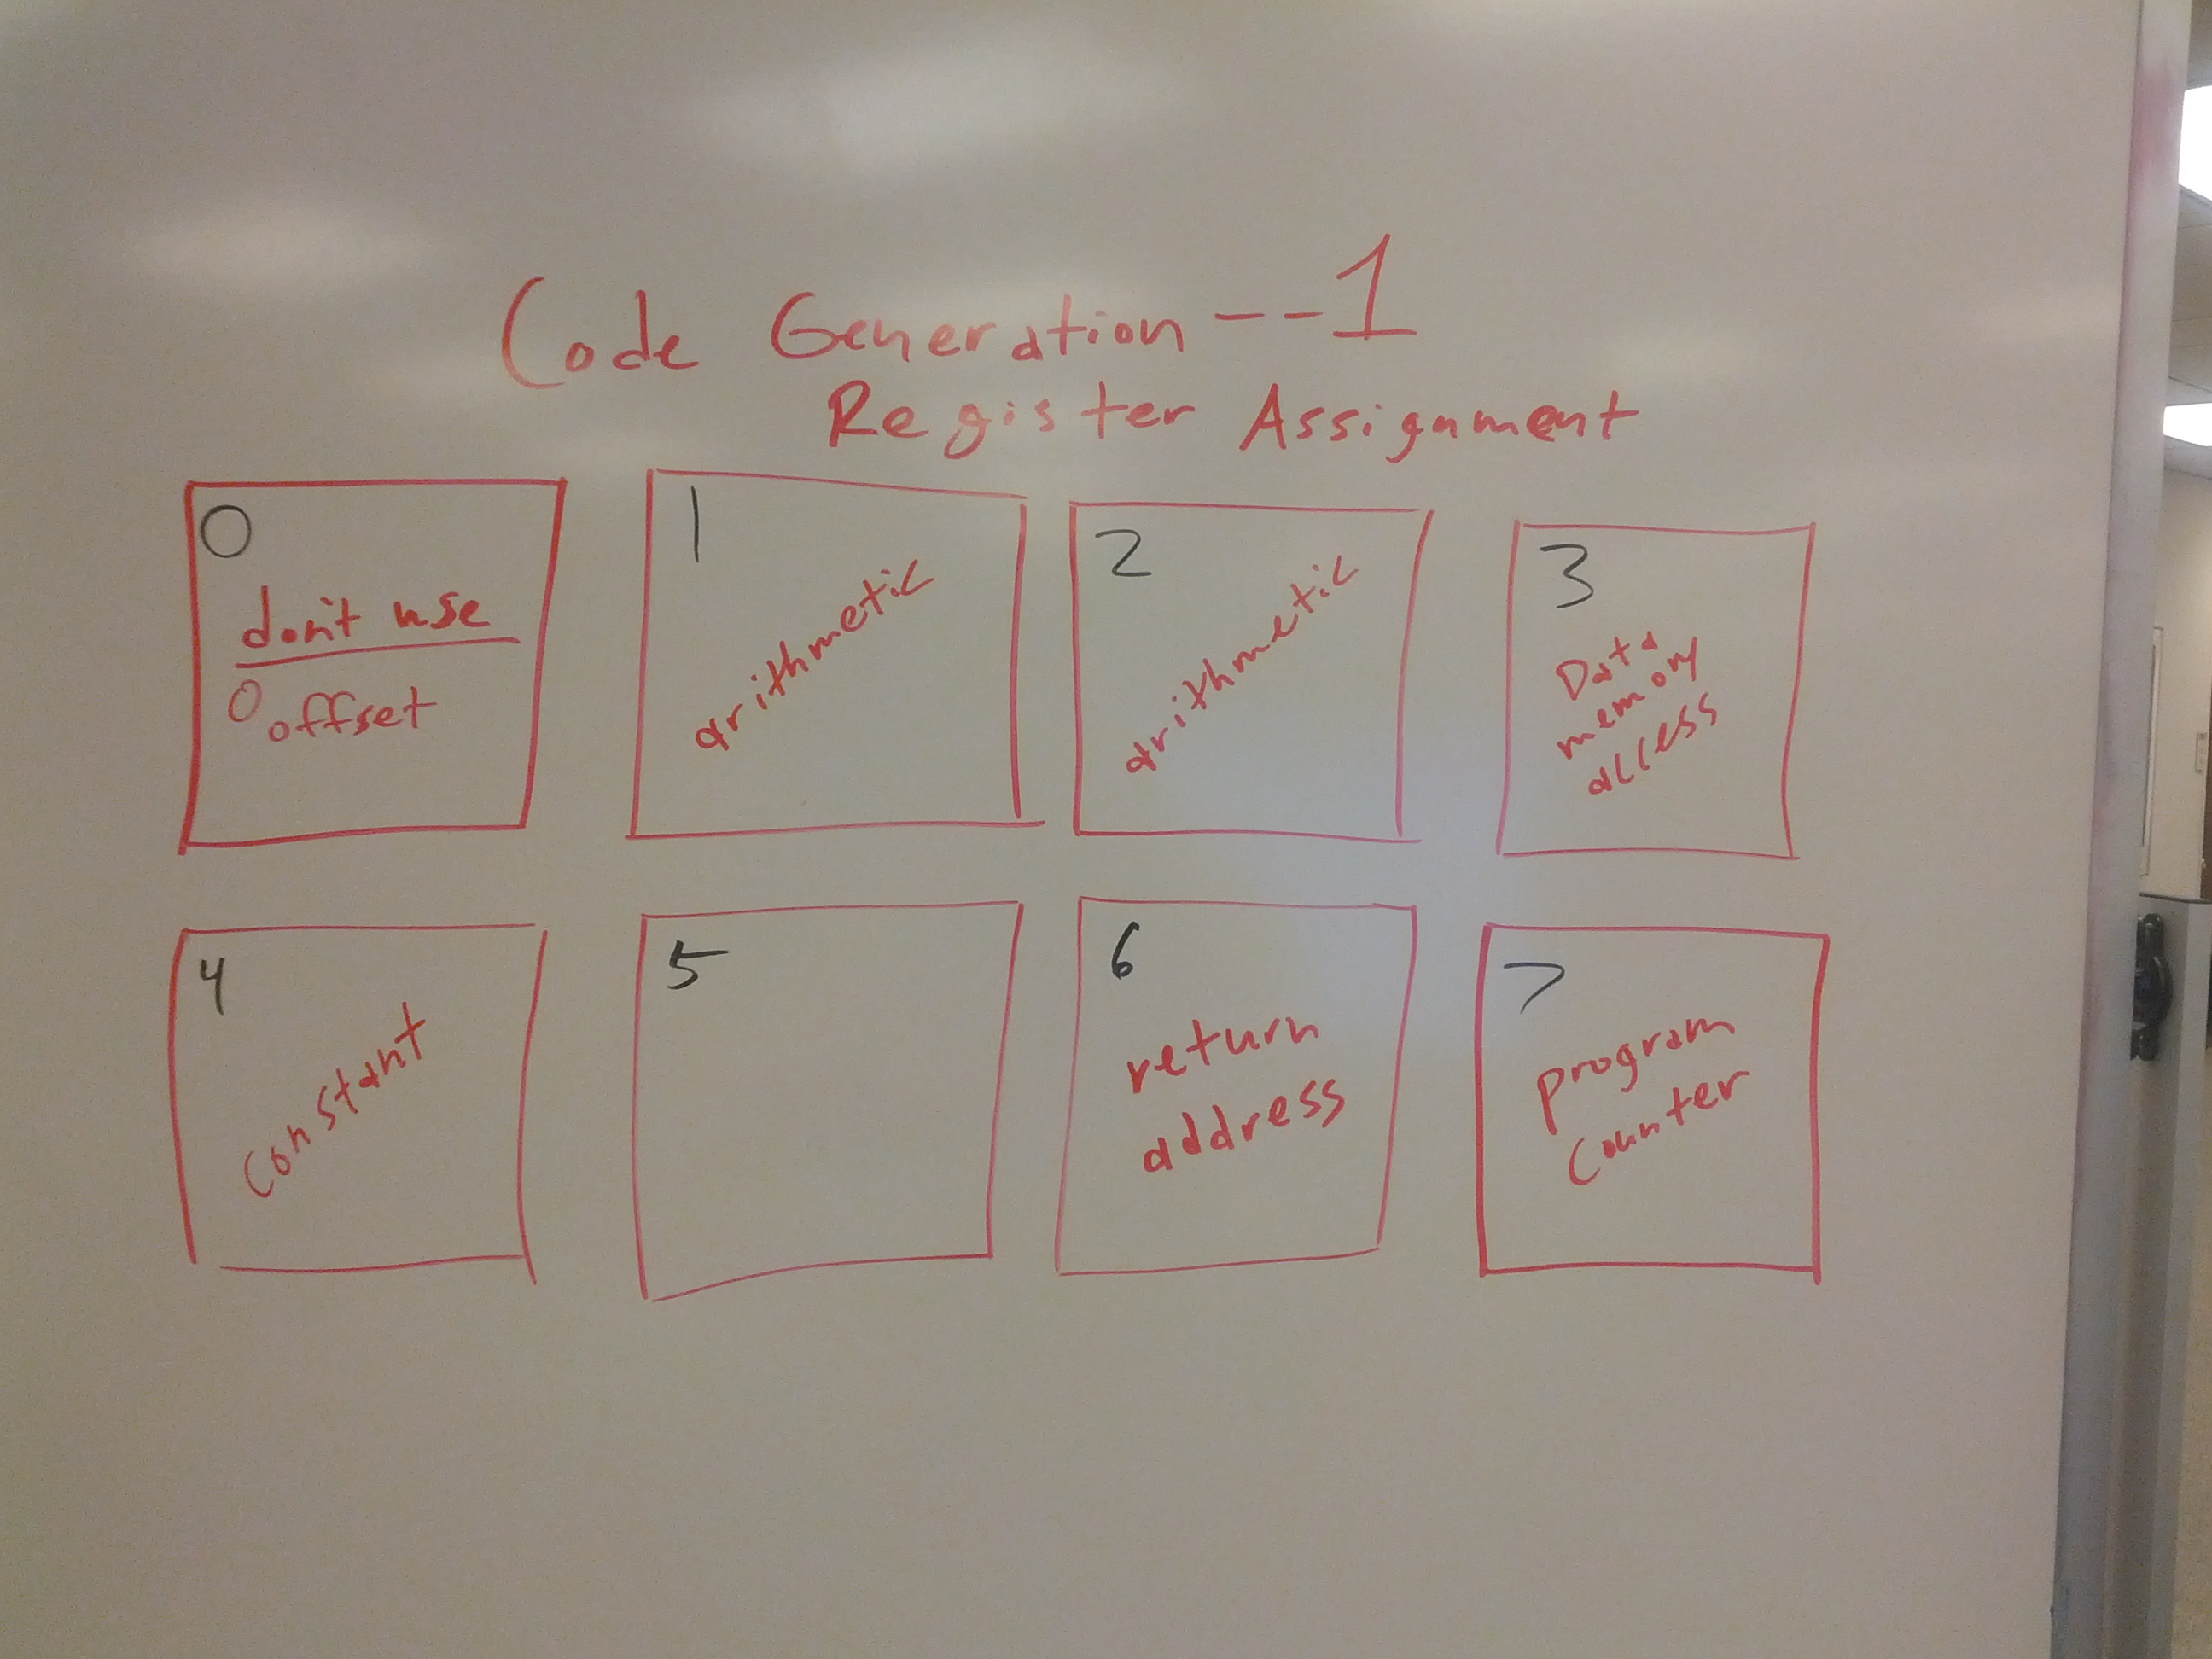 Code Generation -- 1
Register Assignment
0
don't use
0 offset
1
arithmetic
2
arithmetic
3
Data
memory
access
4
Constant
5
6
return
address
7
program
Counter